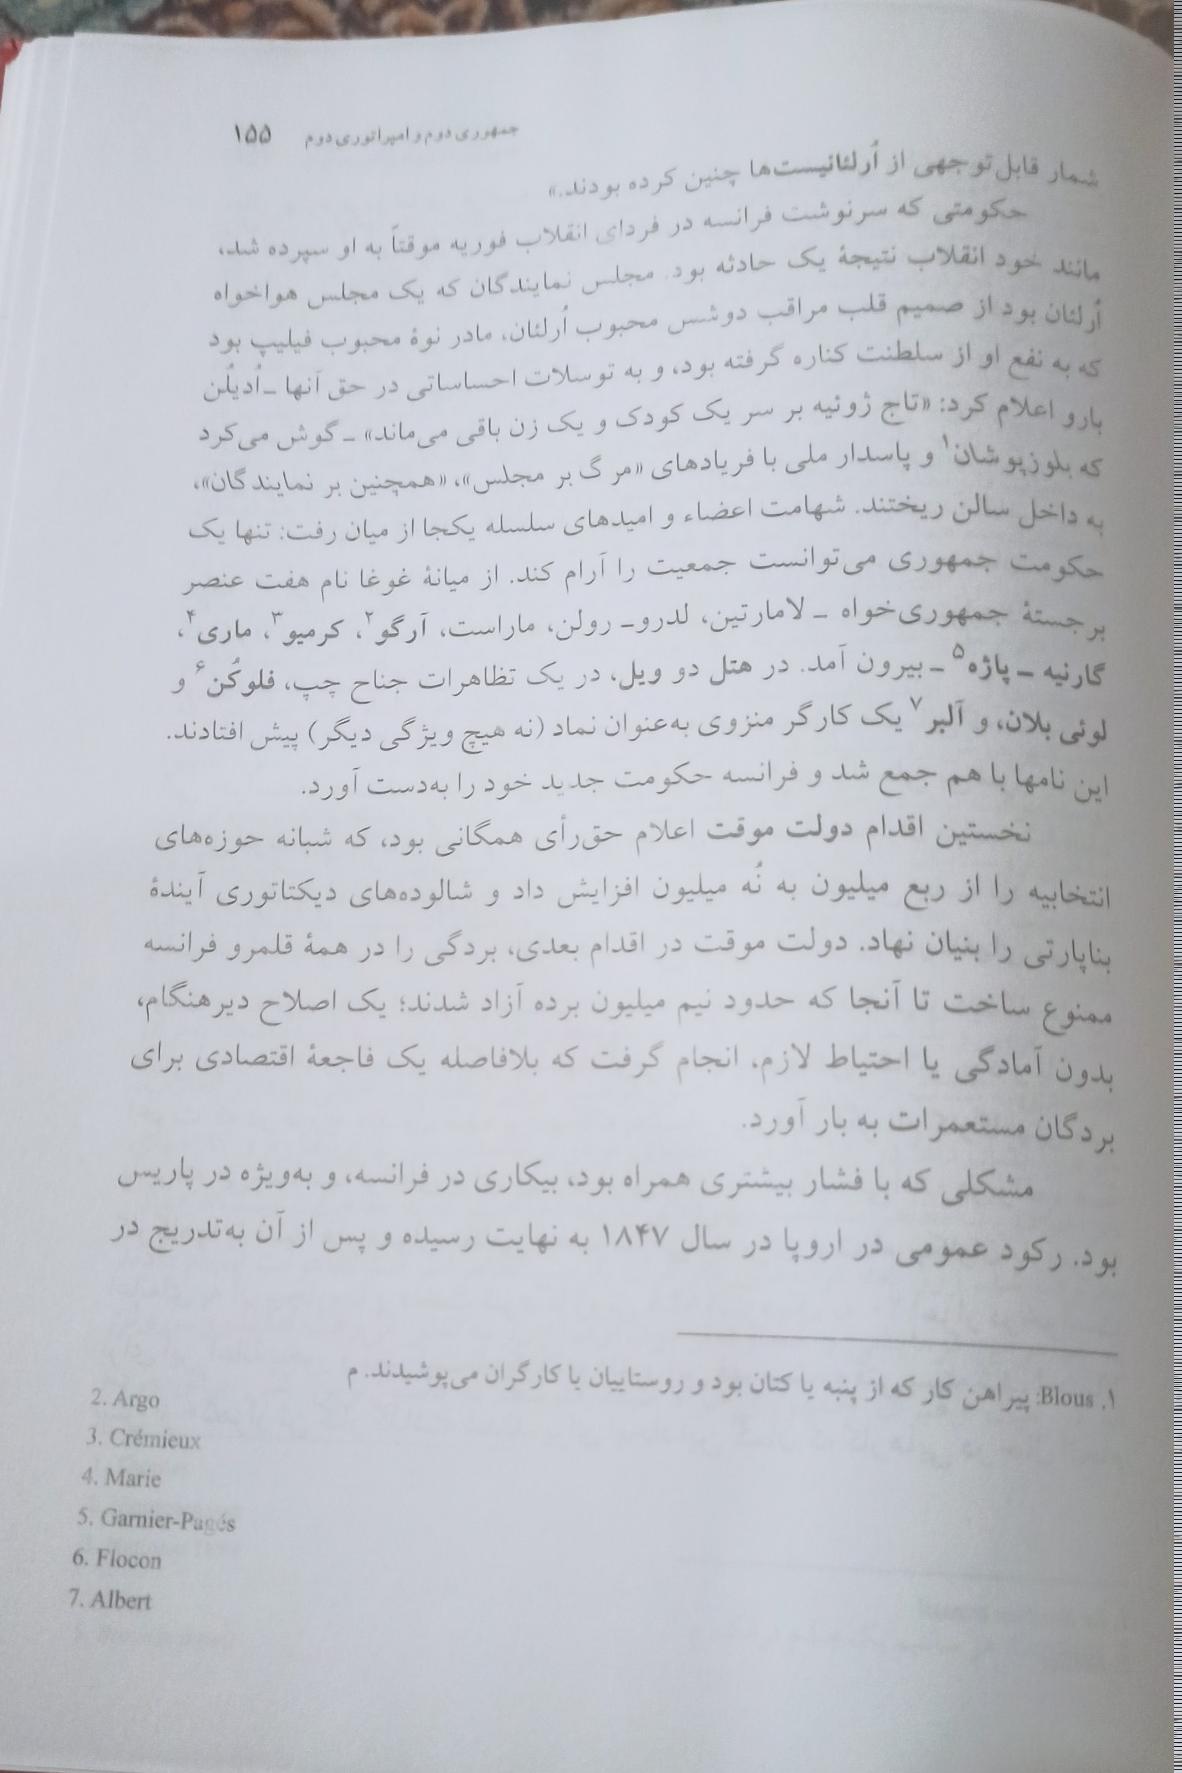 جمهوری دوم و امپراتوری دوم ۱۵۵
شمار قابل‌توجهی از اُرلئانیست‌ها چنین کرده بودند.»
حکومتی که سرنوشت فرانسه در فردای انقلاب فوریه موقتاً به او سپرده شد،
مانند خود انقلاب نتیجهٔ یک حادثه بود. مجلس نمایندگان که یک مجلس هواخواه
اُرلئان بود از صمیم قلب مراقب دوشس محبوب اُرلئان، مادر نوهٔ محبوب فیلیپ بود
که به نفع او از سلطنت کناره گرفته بود، و به توسلات احساساتی در حق آنها ـ اُدیلُن
بارو اعلام کرد: «تاج ژوئیه بر سر یک کودک و یک زن باقی می‌ماند» ـ گوش می‌کرد
که بلوزپوشان۱ و پاسدار ملی با فریادهای «مرگ بر مجلس»، «همچنین بر نمایندگان»،
به داخل سالن ریختند. شهامت اعضاء و امیدهای سلسله یکجا از میان رفت: تنها یک
حکومت جمهوری می‌توانست جمعیت را آرام کند. از میانهٔ غوغا نام هفت عنصر
برجستهٔ جمهوری‌خواه ـ لامارتین، لدروـ رولن، ماراست، آرگو۲، کرمیو۳، ماری۴،
گارنیه ـ پاژه۵ ـ بیرون آمد. در هتل دو ویل، در یک تظاهرات جناح چپ، فلوکُن۶ و
لوئی بلان، و آلبر۷ یک کارگر منزوی به‌عنوان نماد (نه هیچ ویژگی دیگر) پیش افتادند.
این نامها با هم جمع شد و فرانسه حکومت جدید خود را به‌دست آورد.
نخستین اقدام دولت موقت اعلام حق‌رأی همگانی بود، که شبانه حوزه‌های
انتخابیه را از ربع میلیون به نُه میلیون افزایش داد و شالوده‌های دیکتاتوری آیندهٔ
بناپارتی را بنیان نهاد. دولت موقت در اقدام بعدی، بردگی را در همهٔ قلمرو فرانسه
ممنوع ساخت تا آنجا که حدود نیم میلیون برده آزاد شدند؛ یک اصلاح دیرهنگام،
بدون آمادگی یا احتیاط لازم، انجام گرفت که بلافاصله یک فاجعهٔ اقتصادی برای
بردگان مستعمرات به بار آورد.
مشکلی که با فشار بیشتری همراه بود، بیکاری در فرانسه، و به‌ویژه در پاریس
بود. رکود عمومی در اروپا در سال ۱۸۴۷ به نهایت رسیده و پس از آن به‌تدریج در
۱. Blous: پیراهن کار که از پنبه یا کتان بود و روستاییان یا کارگران می‌پوشیدند. م
2. Argo
3. Crémieux
4. Marie
5. Garnier-Pagés
6. Flocon
7. Albert